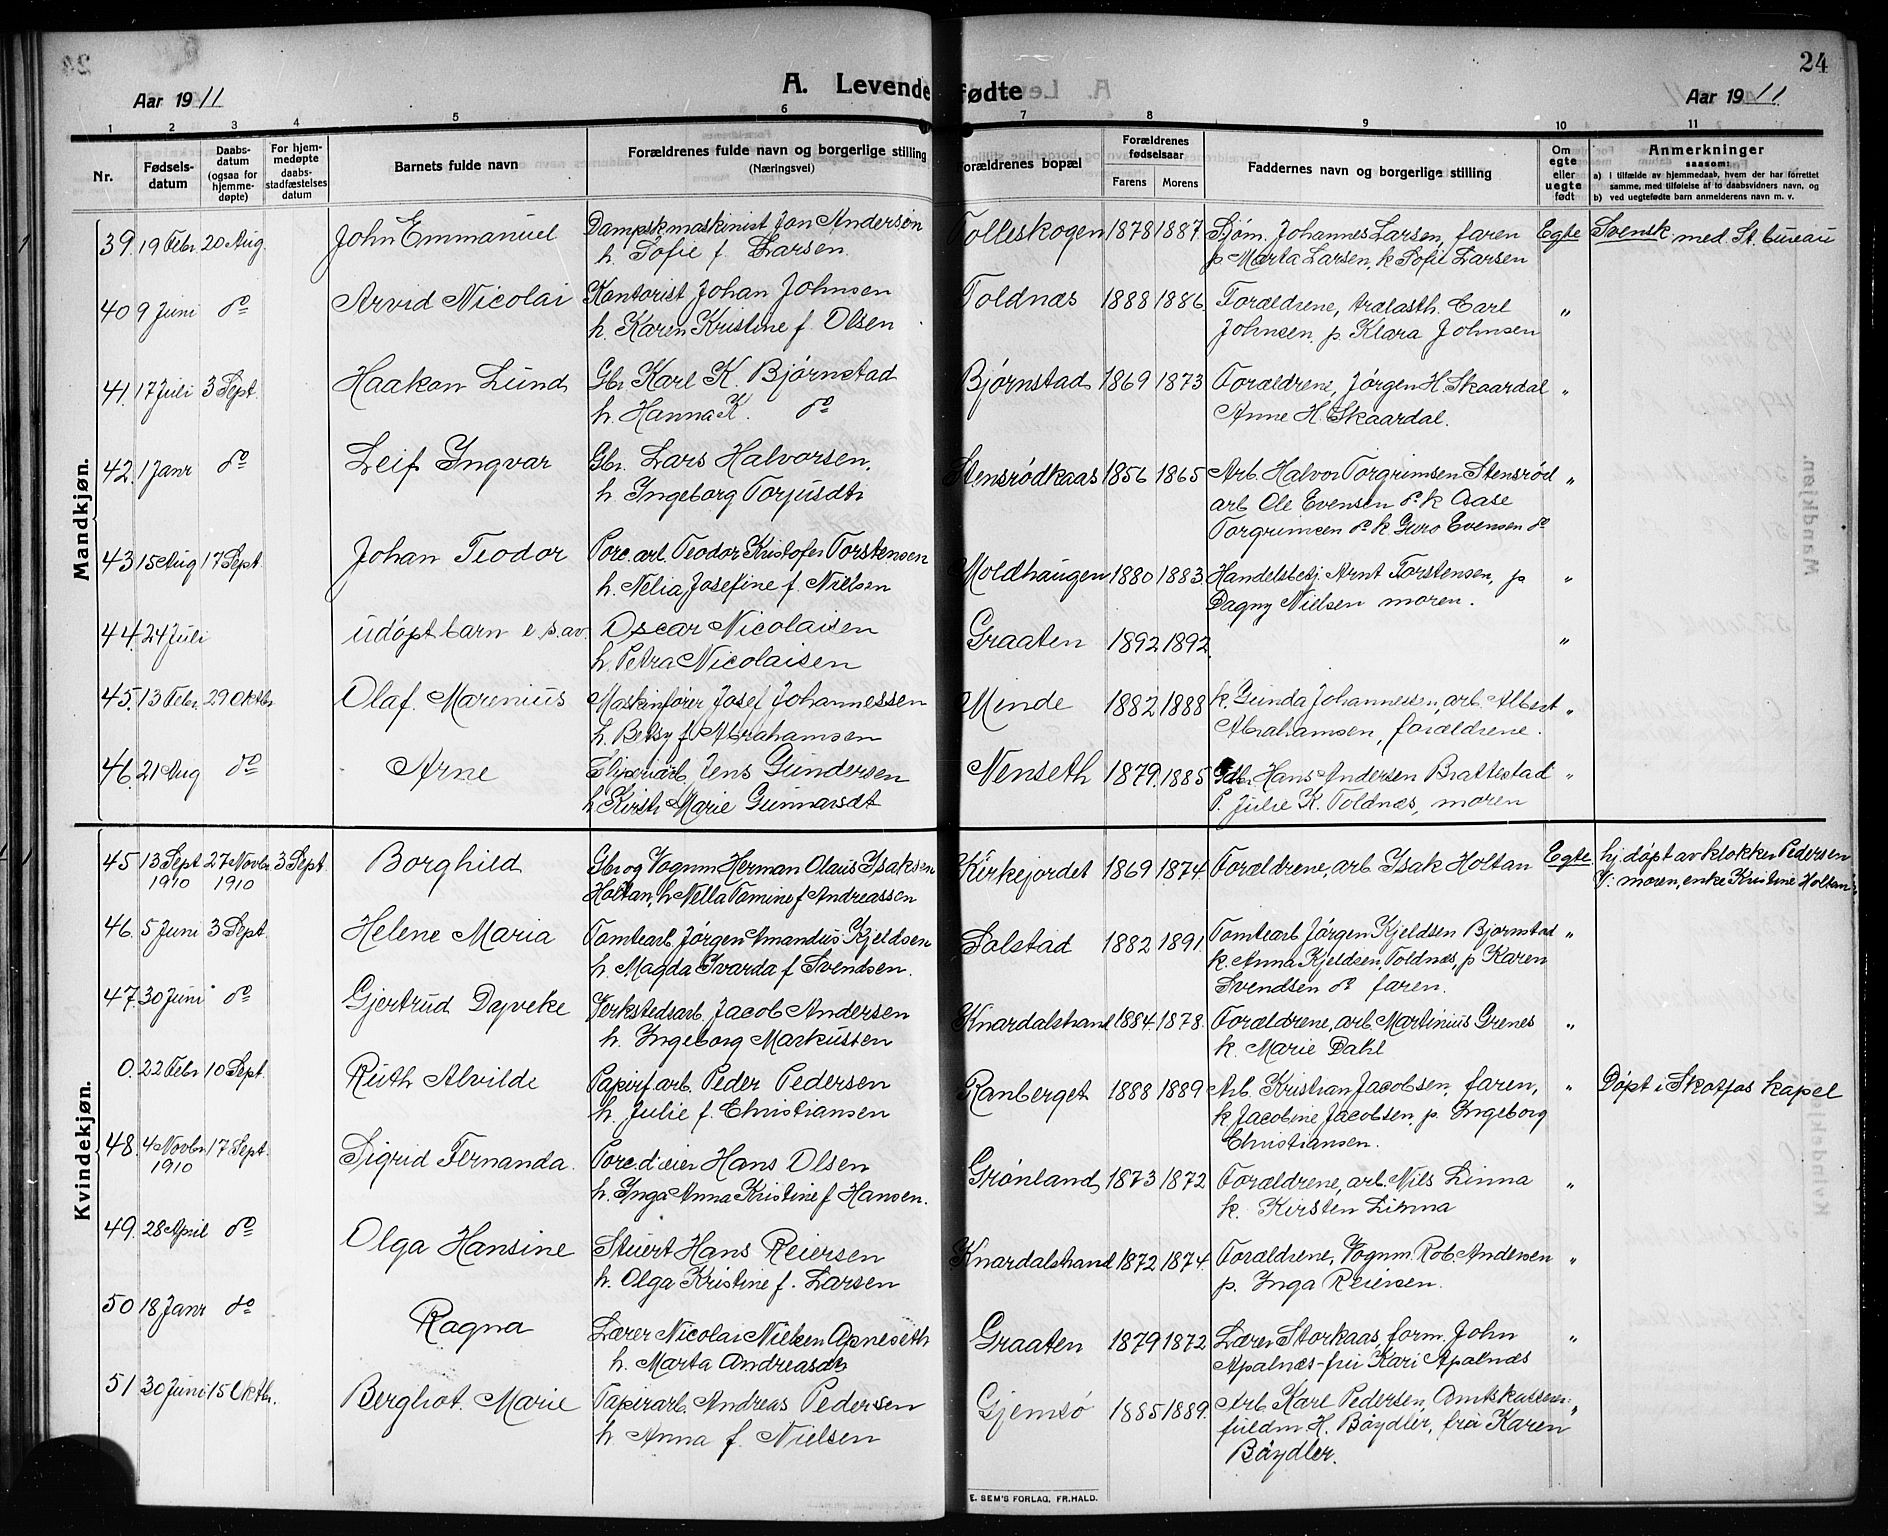 24
A. Levendefødte
Aar 1911
Aar 1911
1 2 3 4 5 6 7 8 9 10 11
Nr.
Fødselsdatum
Daabsdatum (ogsaa for hjemmedøpte)
For hjemmedøpte daabsstadfæstelses datum
Barnets fulde navn
Forældrenes fulde navn og borgerlige stilling
(Næringsvei)
Forældrenes bopæl
Forældrenes fødselsaar
Farens Morens
Faddernes navn og borgerlige stilling
Om egte eller uegte født
Anmerkninger
saasom:
a) i tilfælde av hjemmedaab, hvem der har forrettet samme, med tilføielse af to daabsvidners navn, og
b) ved uegtefødte barn anmelderens navn m. v.
Mandkjøn.
39. 19 Febr. 20 Aug. John Emmanuel Dampsk.maskinist Jon Anderson Tolleskogen 1878 1887. Sjøm. Johannes Larsen, faren Egte Svensk. med. St. bureau
h. Sofie f. Larsen. p Marta Larsen, k Sofie Larsen
40 9 Juni do Arvid Nicolai Kontorist Johan Johnsen Toldnæs 1888 1886. Forældrene, trælasth. Carl "
h. Karen Kristine f. Olsen Johnsen, p. Klara Johnsen
41. 17 Juli 3 Sept. Haakon Lund Gbr. Karl K. Bjørnstad Bjørnstad 1869 1873 Forældrene, Jørgen H. Skaardal "
h. Hanna K. do Anne H. Skaardal.
42. 1 Janr do Leif Ingvar Gbr. Lars Halvorsen, Stensrødkaas 1856 1865 Arb. Halvor Torgrimsen Stensrød "
h. Ingeborg Torjusdtr arb Ole Evensen do k Aase
Torgrimsen do k. Guro Evensen do
43 15 Aug 17 Sept. Johan Teodor Porc. arb. Teodor Kristofer Torstensen Moldhaugen 1880 1883. Handelsbetj. Arnt Torstensen, p "
h. Nelia Josefine f. Nielsen Dagny Nielsen moren.
44. 24 Juli udøpt barn e. s. av. Oscar Nicolaisen Graaten 1892 1892. "
h. Petra Nicolaisen
45. 13 Febr. 29 Oktbr Olaf. Marenius Maskinfører Josef Johannessen Minde 1882 1888 k. Gunda Johannessen, arb. Albert "
h. Betsy f Abrahamsen Abrahamsen, forældrene.
46. 21 Aug do Arne Sliperiarb. Jens Gundersen Nenseth 1879. 1885 Gdbr. Hans Andersen Brattestad "
h Kirsti Marie Gunnarsdt P. Julie K. Toldnæs, moren
Kvindekjøn.
45 13 Sept 1910 27 Novbr 1910 3 Sept. Borghild Gbr og Vognm Herman Olaus Isaksen Kirkejordet 1869 1874. Forældrene, arb. Isak Holtan Egte hj. døpt av klokker Pedersen
Holtan, h Nella Tomine f Andreassen V: moren, enke Kristine Holtan
46. 5 Juni 3 Sept. Helene Maria Tomtearb. Jørgen Amandus Kjeldsen Solstad 1882 1891. Tomtearb Jørgen Kjeldsen Bjørnstad "
h. Magda Svarda f Svendsen. k. Anna Kjeldsen, Toldnæs, p Karen
Svendsen do faren.
47. 30 Juni do Gjertrud Dyveke Verkstedsarb. Jacob Andersen Knardalstrand 1884. 1878. Forældrene, arb Martinius Grenes "
h. Ingeborg Markussen k. Marie Dahl
0. 22 Febr 10 Sept. Ruth Alvilde Papirf. arb. Peder Pedersen Ranberget 1888 1889 Arb. Kristian Jacobsen, faren, " Døpt i Skotfos kapel
h. Julie f. Christiansen k Jacobine Jacobsen, p. Ingeborg
Christiansen.
48. 4 Novbr 1910 17 Sept. Sigrid Fernanda. Porc.d'eier Hans Olsen Grønland 1873 1872 Forældrene, arb. Nils Linna "
h. Inga Anna Kristine f Hansen. k. Kirsten Linna
49. 28 April do Olga Hansine Stuert Hans Reiersen Knardalstrand 1872 1874. Forældrene, Vognm. Rob. Andersen "
h. Olga Kristine f. Larsen p. Inga Reiersen.
50 18 Janr do Ragna Lærer Nicolai Nielsen Apneseth Graaten 1879 1872 Lærer Storkaas, form. John "
h. Marta Andreasdtr Apalnæs - fru Kari Apalnæs
51 30 Juni 15 Oktbr. Bergliot. Marie Papirarb. Andreas Pedersen Gjemsø 1885 1889. Arb Karl Pedersen, Amtskasserer- "
h Anna f. Nielsen fuldm H. Bøydler, fru Karen
Bøydler.
E. SEM'S FORLAG, FR.HALD.